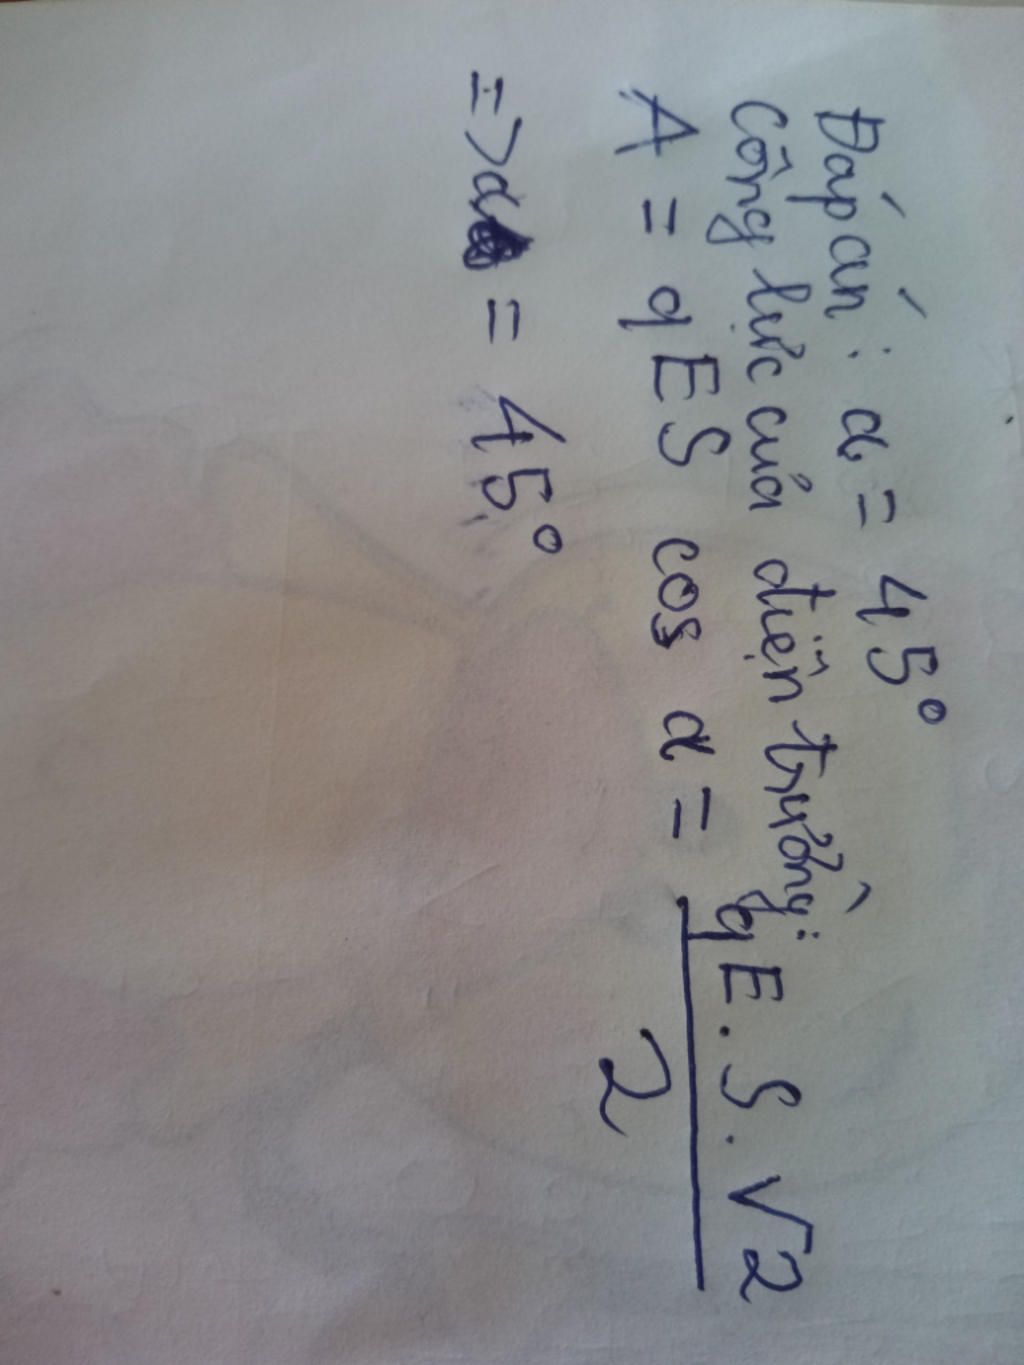 Đáp án: α = 45°
Công lực của điện trường:
A = qES cos α = qE.S.√2 / 2
=> α = 45°